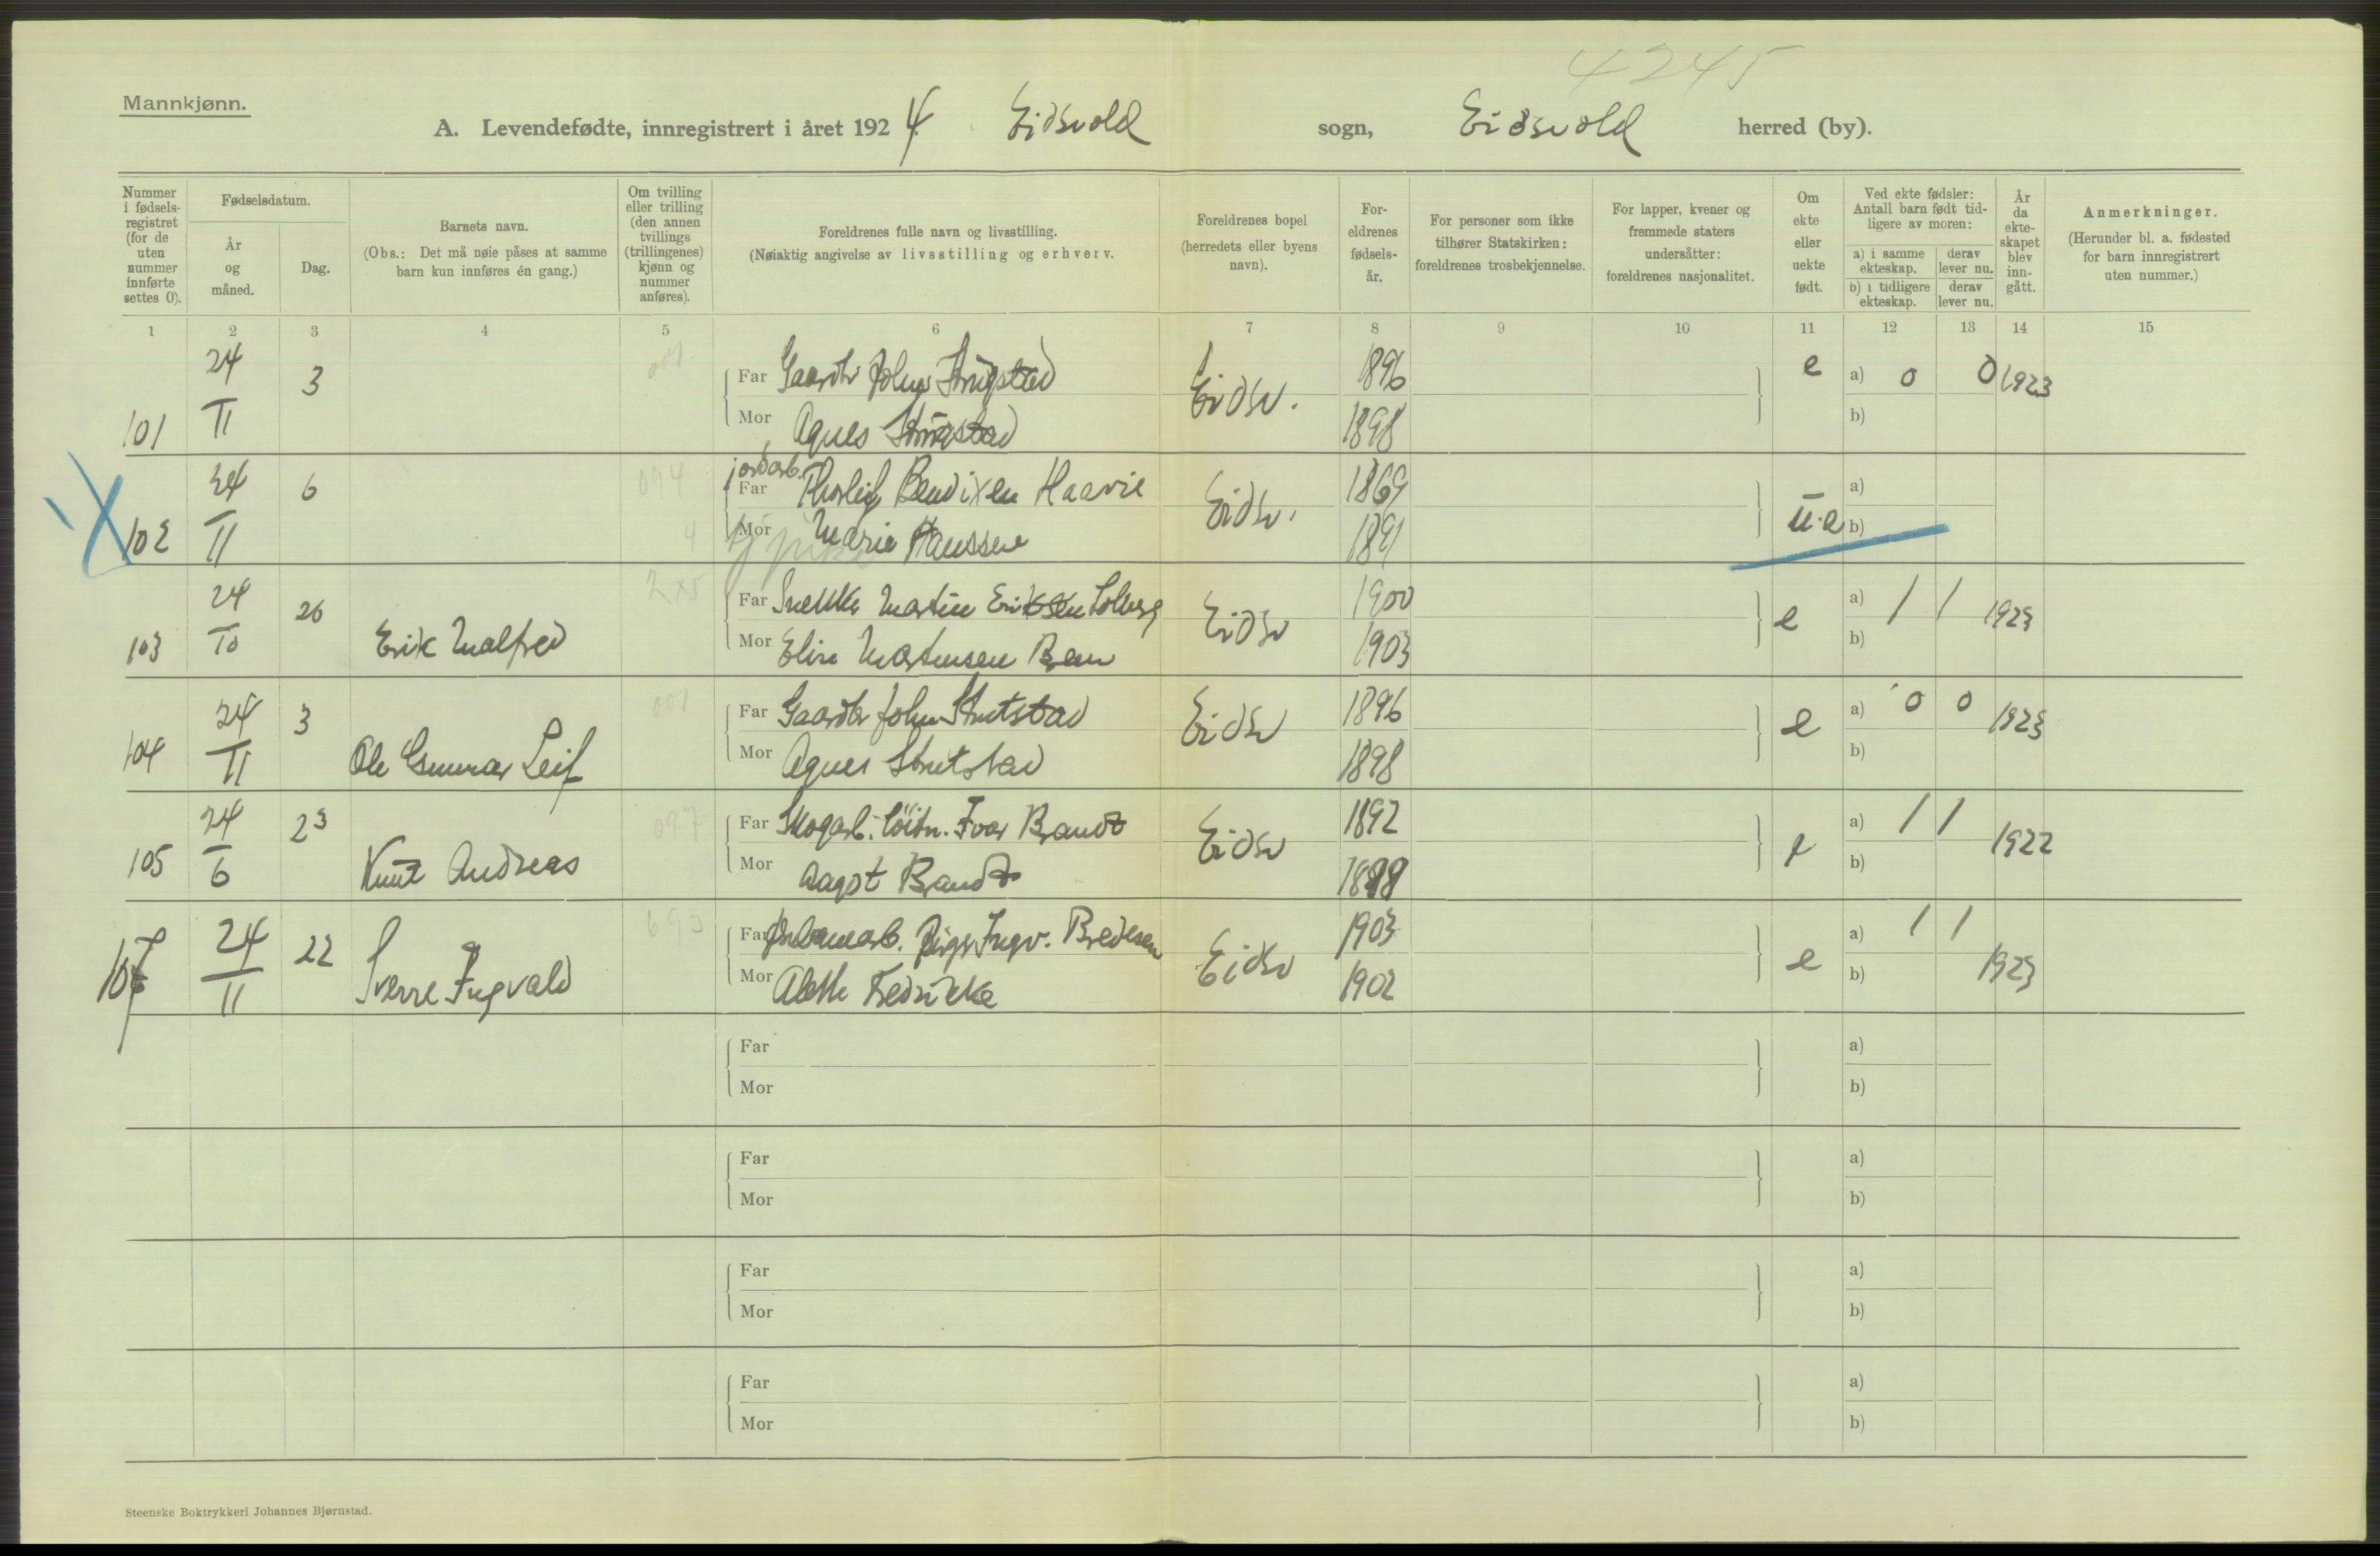 4245
Mannkjønn.
A. Levendefødte, innregistrert i året 1924 Eidsvold sogn, Eidsvold herred (by).
Nummer i fødselsregistret (for de uten nummer innførte settes 0).
Fødselsdatum.
År og måned.
Dag.
Barnets navn.
(Obs.: Det må nøie påses at samme barn kun innføres én gang.)
Om tvilling eller trilling (den annen tvillings (trillingenes) kjønn og nummer anføres).
Foreldrenes fulle navn og livsstilling.
(Nøiaktig angivelse av livsstilling og erhverv.
Foreldrenes bopel (herredets eller byens navn).
Foreldrenes fødselsår.
For personer som ikke tilhører Statskirken: foreldrenes trosbekjennelse.
For lapper, kvener og fremmede staters undersåtter: foreldrenes nasjonalitet.
Om ekte eller uekte født.
Ved ekte fødsler: Antall barn født tidligere av moren:
a) i samme ekteskap. derav lever nu.
b) i tidligere ekteskap. derav lever nu.
År da ekteskapet blev inngått.
Anmerkninger.
(Herunder bl. a. fødested for barn innregistrert uten nummer.)
1 2 3 4 5 6 7 8 9 10 11 12 13 14 15
101 24/11 3 Far Gaardbr John Eidsv. 1896 e a) 0 0 1923
Mor Agnes 1898 b)
102 24/11 6 094 jordarb. Far Thorleif Bendixen Haavie Eidsv. 1869 u.e a)
4 Mor Marie Hanssen 1891 b)
103 24/10 26 Erik Malfred Far Snekker Martin Eriksen Solberg Eidsv 1900 e a) 1 1 1923
Mor Elise Martinsen 1903 b)
104 24/11 3 Ole Gunnar Leif 001 Far Gaardbr John Strutstad Eidsv 1896 e a) 0 0 1923
Mor Agnes Strutstad 1898 b)
105 24/6 23 Knut Andreas 097 Far Skogarb. löitn. Ivar Brandt Eidsv 1892 e a) 1 1 1922
Mor Aagot Brandt b)
107 24/11 22 Sverre Ingvald Far Birger Ingv. Bredesen Eidsv 1903 e a) 1 1 1923
Mor Alette Fredrikke 1902 b)
Far a)
Mor b)
Far a)
Mor b)
Far a)
Mor b)
Far a)
Mor b)
Steenske Boktrykkeri Johannes Bjørnstad.